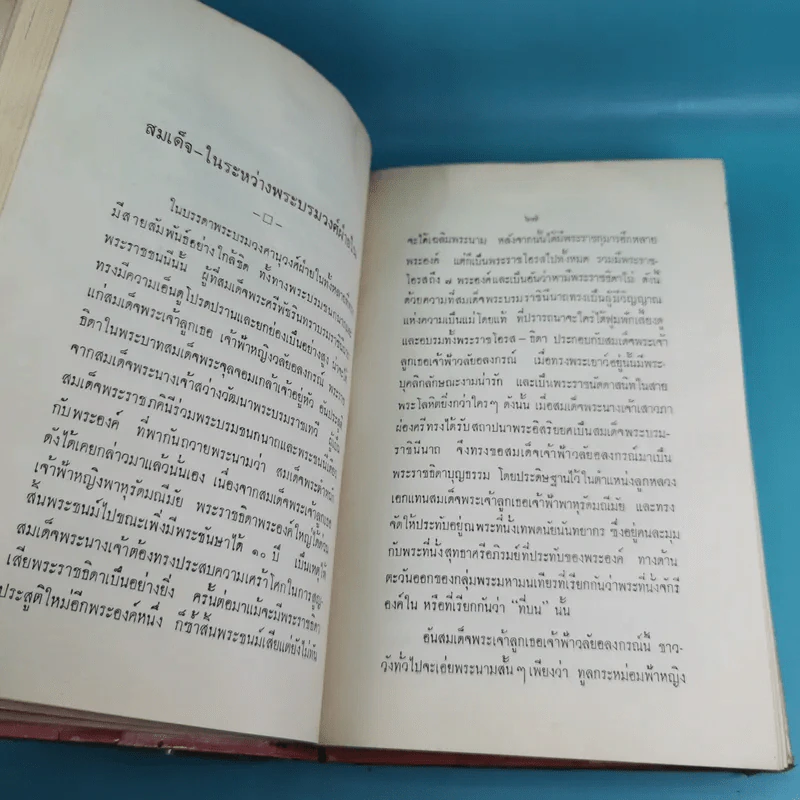 สมเด็จ–ในระหว่างพระบรมวงศ์ฝ่ายใน
–□–
ในบรรดาพระบรมวงศานุวงศ์ฝ่ายในทั้งหลาย
มีสายสัมพันธ์อย่างใกล้ชิด ทั้งทางพระบรมชนกนาถและ
พระราชชนนีนั้น ผู้ที่สมเด็จพระศรีพัชรินทราบรมราชินีนาถ
ทรงมีความเอ็นดูโปรดปรานและยกย่องเป็นอย่างสูง น่าจะได้
แก่สมเด็จพระเจ้าลูกเธอ เจ้าฟ้าหญิงวลัยอลงกรณ์ พระราช
ธิดาในพระบาทสมเด็จพระจุลจอมเกล้าเจ้าอยู่หัว อันประสูติ
จากสมเด็จพระนางเจ้าสว่างวัฒนาพระบรมราชเทวี ผู้เป็น
สมเด็จพระราชภคินีร่วมพระบรมชนกนาถและพระชนนีเดียว
กับพระองค์ ที่พากันถวายพระนามว่า สมเด็จพระตำหนัก
ดังได้เคยกล่าวมาแล้วนั้นเอง เนื่องจากสมเด็จพระเจ้าลูกเธอ
เจ้าฟ้าหญิงพาหุรัดมณีมัย พระราชธิดาพระองค์ใหญ่ได้ด่วน
สิ้นพระชนม์ไปขณะเพิ่งมีพระชันษาได้ ๑๐ ปี เป็นเหตุให้
สมเด็จพระนางเจ้าต้องทรงประสบความเศร้าโศกในการสูญ
เสียพระราชธิดาเป็นอย่างยิ่ง ครั้นต่อมาแม้จะมีพระราชธิดา
ประสูติใหม่อีกพระองค์หนึ่ง ก็ซ้ำสิ้นพระชนม์เสียแต่ยังไม่ทัน
๖๗
จะได้เฉลิมพระนาม หลังจากนั้นได้มีพระราชกุมารอีกหลาย
พระองค์ แต่ก็เป็นพระราชโอรสไปทั้งหมด รวมมีพระราช-
โอรสถึง ๗ พระองค์และเป็นอันว่าหามีพระราชธิดาไม่ ดังนี้
ด้วยความที่สมเด็จพระบรมราชินีนาถทรงเป็นผู้มีวิญญาณ
แห่งความเป็นแม่โดยแท้ ที่ปรารถนาจะใคร่ได้ฟูมฟักเลี้ยงดู
และอบรมทั้งพระราชโอรส–ธิดา ประกอบกับสมเด็จพระเจ้า
ลูกเธอเจ้าฟ้าวลัยอลงกรณ์ เมื่อทรงพระเยาว์อยู่นั้นมีพระ-
บุคลิกลักษณะงามน่ารัก และเป็นพระราชนัดดาสนิทในสาย
พระโลหิตยิ่งกว่าใคร ๆ ดังนั้น เมื่อสมเด็จพระนางเจ้าเสาวภา
ผ่องศรีทรงได้รับสถาปนาพระอิสริยยศเป็นสมเด็จพระบรม-
ราชินีนาถ จึงทรงขอสมเด็จเจ้าฟ้าวลัยอลงกรณ์มาเป็น
พระราชธิดาบุญธรรม โดยประดิษฐานไว้ในตำแหน่งลูกหลวง
เอกแทนสมเด็จพระเจ้าลูกเธอเจ้าฟ้าพาหุรัดมณีมัย และทรง
จัดให้ประทับอยู่ณพระที่นั่งเทพดนัยนันทยากร ซึ่งอยู่คนละมุม
กับพระที่นั่งสุทธาศรีอภิรมย์ที่ประทับของพระองค์ ทางด้าน
ตะวันออกของกลุ่มพระมหามนเทียรที่เรียกกันว่าพระที่นั่งจักรี
องค์ใน หรือที่เรียกกันว่า “ที่บน” นั้น
อันสมเด็จพระเจ้าลูกเธอเจ้าฟ้าวลัยอลงกรณ์นี้ ชาว-
วังทั่วไปจะเอ่ยพระนามสั้น ๆ เพียงว่า ทูลกระหม่อมฟ้าหญิง